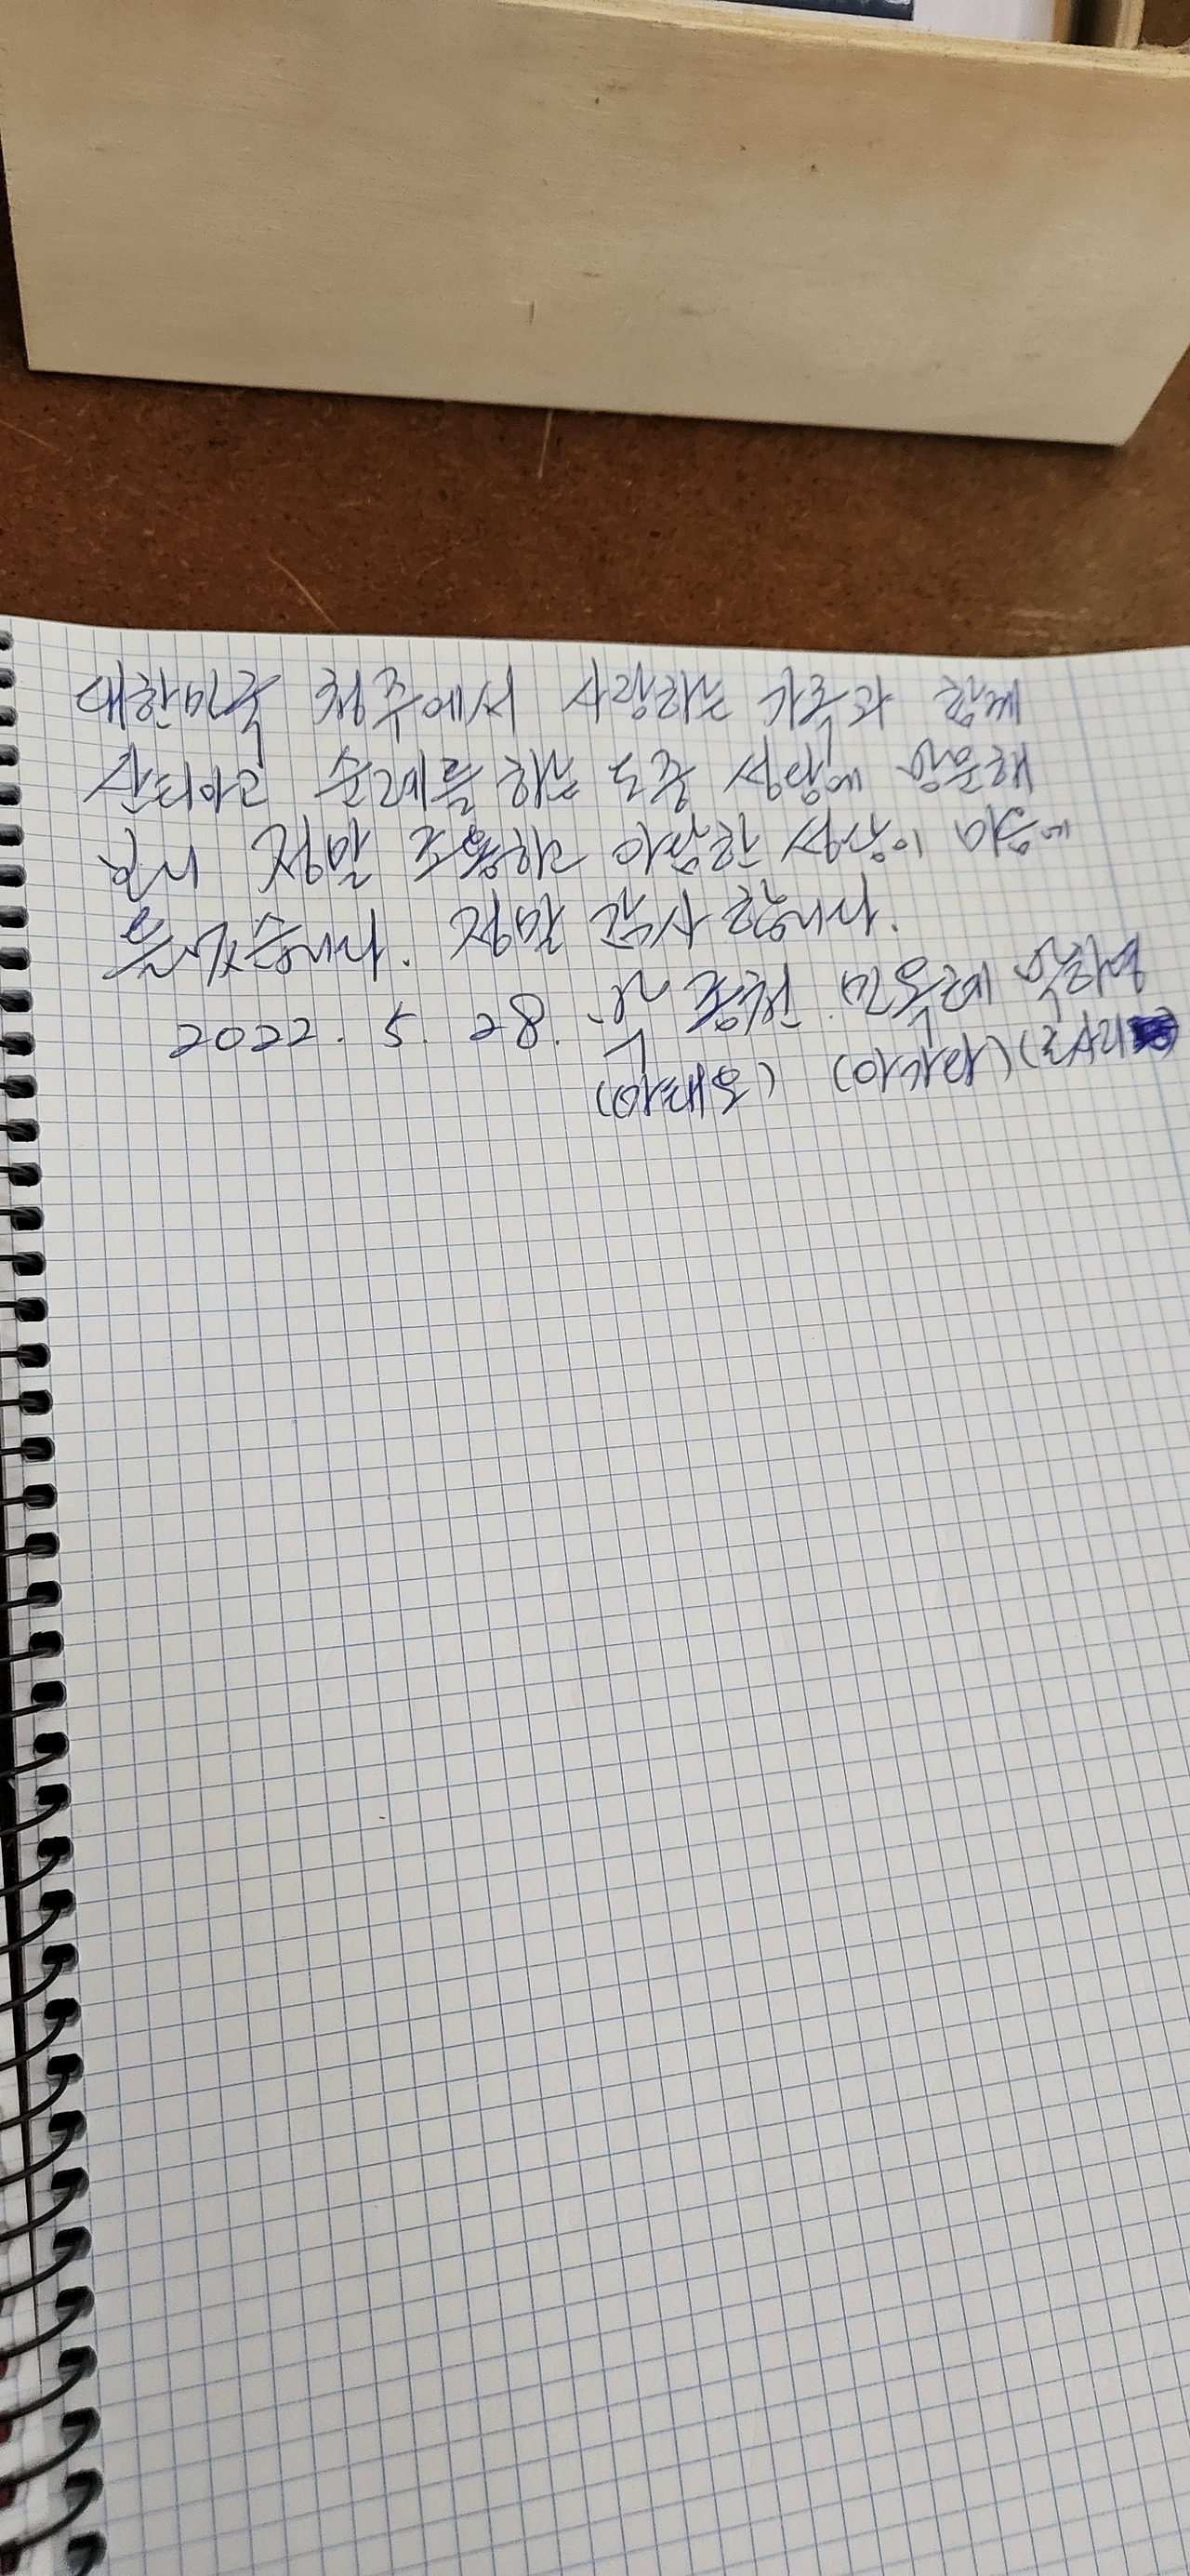 대한민국 청주에서 사랑하는 가족과 함께
산티아고 순례를 하는 도중 성당에 방문해
보니 정말 조용하고 아담한 성당이 마음에
들었습니다. 정말 감사합니다.
2022. 5. 28.
(마태오) (아가다)